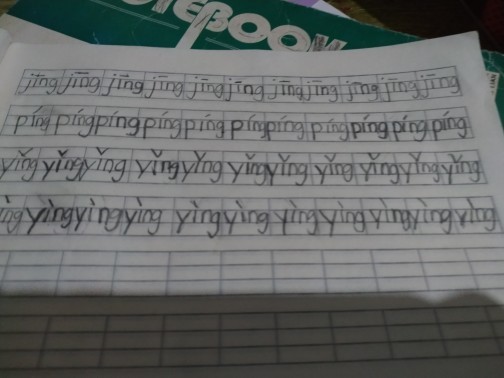 OTEBOOK
jīng jīng jīng jīng jīng jīng jīng jīng jīng jīng jīng
píng píng píng píng píng píng píng píng píng píng píng
yǐng yǐng yǐng yǐng yǐng yǐng yǐng yǐng yǐng yǐng yǐng
ìng yìng yìng yìng yìng yìng yìng yìng yìng yìng yìng